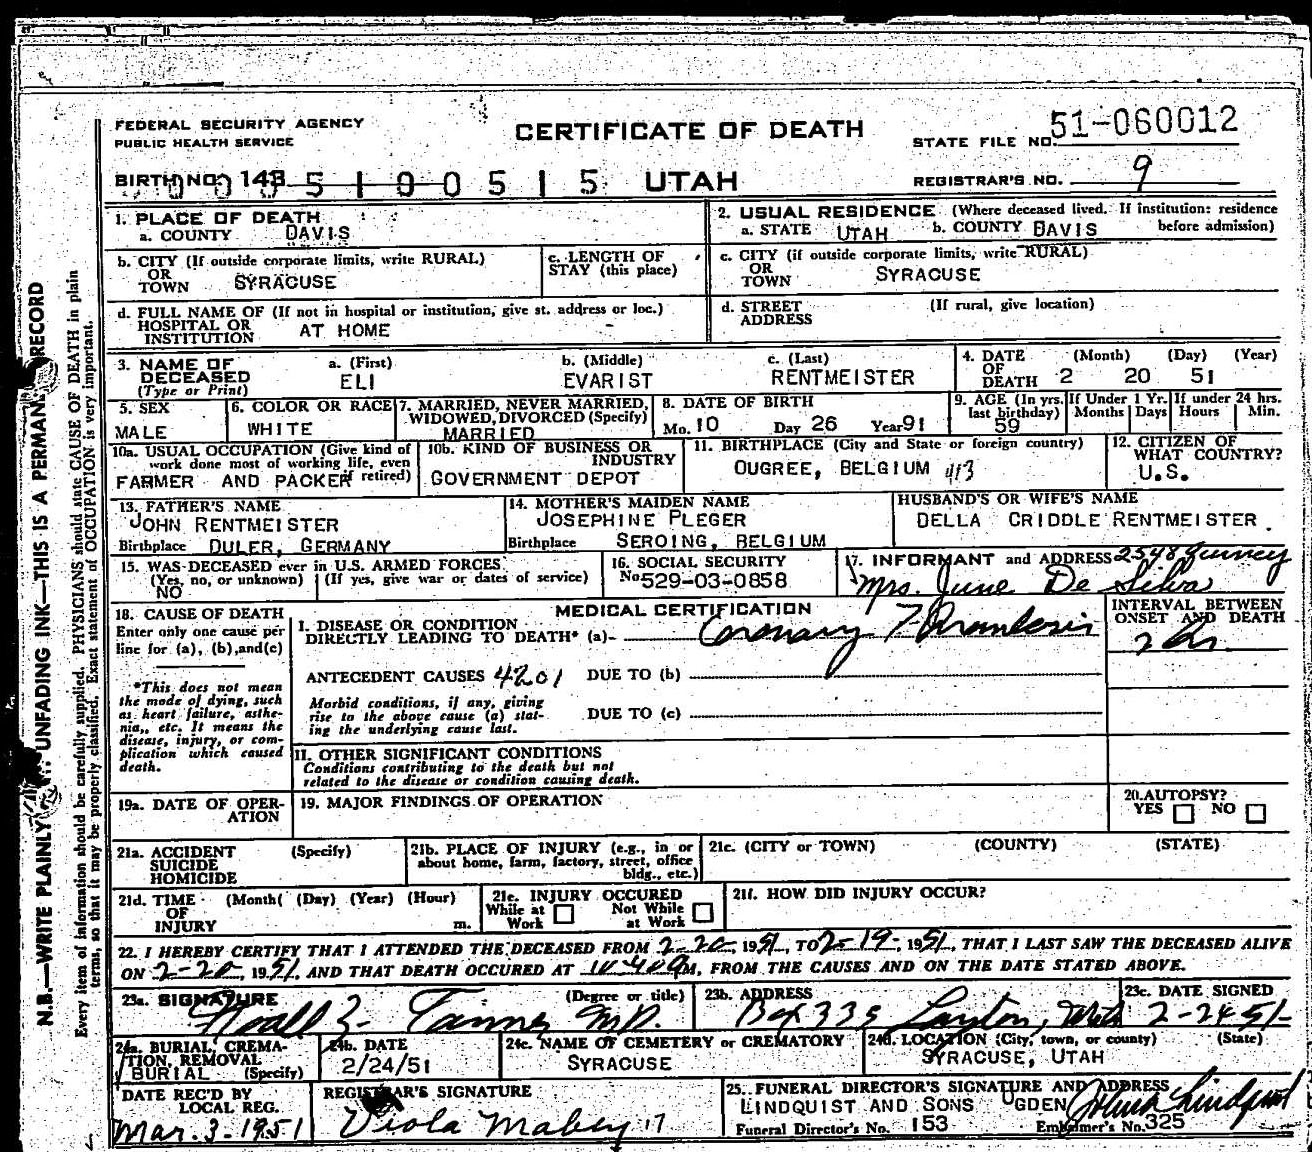 FEDERAL SECURITY AGENCY
PUBLIC HEALTH SERVICE
CERTIFICATE OF DEATH
STATE FILE NO. 51-060012
BIRTH NO. 143
0005190515 UTAH
REGISTRAR'S NO. 9
1. PLACE OF DEATH
a. COUNTY DAVIS
2. USUAL RESIDENCE (Where deceased lived. If institution: residence before admission)
a. STATE UTAH b. COUNTY DAVIS
b. CITY (If outside corporate limits, write RURAL)
OR
TOWN SYRACUSE
c. LENGTH OF
STAY (this place)
c. CITY (if outside corporate limits, write RURAL)
OR
TOWN SYRACUSE
d. FULL NAME OF (If not in hospital or institution, give st. address or loc.)
HOSPITAL OR
INSTITUTION AT HOME
d. STREET
ADDRESS
(If rural, give location)
3. NAME OF
DECEASED
(Type or Print)
a. (First)
ELI
b. (Middle)
EVARIST
c. (Last)
RENTMEISTER
4. DATE
OF
DEATH
(Month) (Day) (Year)
2 20 51
5. SEX
MALE
6. COLOR OR RACE
WHITE
7. MARRIED, NEVER MARRIED,
WIDOWED, DIVORCED (Specify)
MARRIED
8. DATE OF BIRTH
Mo. 10 Day 26 Year 91
9. AGE (In yrs. last birthday)
59
If Under 1 Yr.
Months Days
If under 24 hrs.
Hours Min.
10a. USUAL OCCUPATION (Give kind of
work done most of working life, even
if retired)
FARMER AND PACKER
10b. KIND OF BUSINESS OR
INDUSTRY
GOVERNMENT DEPOT
11. BIRTHPLACE (City and State or foreign country)
OUGREE, BELGIUM 413
12. CITIZEN OF
WHAT COUNTRY?
U.S.
13. FATHER'S NAME
JOHN RENTMEISTER
Birthplace DULER, GERMANY
14. MOTHER'S MAIDEN NAME
JOSEPHINE PLEGER
Birthplace SEROING, BELGIUM
HUSBAND'S OR WIFE'S NAME
DELLA CRIDDLE RENTMEISTER.
15. WAS DECEASED ever in U.S. ARMED FORCES
(Yes, no, or unknown) (If yes, give war or dates of service)
NO
16. SOCIAL SECURITY
No. 529-03-0858
17. INFORMANT and ADDRESS 2548 Quincy
Mrs. June De Silva
18. CAUSE OF DEATH
Enter only one cause per
line for (a), (b), and (c)
*This does not mean
the mode of dying, such
as heart failure, asthe-
nia,, etc. It means the
disease, injury, or com-
plication which caused
death.
MEDICAL CERTIFICATION
I. DISEASE OR CONDITION
DIRECTLY LEADING TO DEATH* (a) Coronary Thrombosis
INTERVAL BETWEEN
ONSET AND DEATH
ANTECEDENT CAUSES 4201 DUE TO (b)
Morbid conditions, if any, giving
rise to the above cause (a) stat-
ing the underlying cause last.
DUE TO (c)
11. OTHER SIGNIFICANT CONDITIONS
Conditions contributing to the death but not
related to the disease or condition causing death.
19a. DATE OF OPER-
ATION
19. MAJOR FINDINGS OF OPERATION
20. AUTOPSY?
YES NO
21a. ACCIDENT
SUICIDE
HOMICIDE
(Specify)
21b. PLACE OF INJURY (e.g., in or
about home, farm, factory, street, office
bldg., etc.)
21c. (CITY or TOWN) (COUNTY) (STATE)
21d. TIME
OF
INJURY
(Month( (Day) (Year) (Hour)
m.
21e. INJURY OCCURED
While at
Work
Not While
at Work
21f. HOW DID INJURY OCCUR?
22. I HEREBY CERTIFY THAT I ATTENDED THE DECEASED FROM 2-20, 1951, TO 2-19, 1951, THAT I LAST SAW THE DECEASED ALIVE
ON 2-20, 1951, AND THAT DEATH OCCURED AT 10:40 M, FROM THE CAUSES AND ON THE DATE STATED ABOVE.
23a. SIGNATURE (Degree or title)
Noall Z. Tanner M.D.
23b. ADDRESS
Box 335 Layton, Utah
23c. DATE SIGNED
2-24-51
24a. BURIAL, CREMA-
TION, REMOVAL
(Specify)
BURIAL
24b. DATE
2/24/51
24c. NAME OF CEMETERY or CREMATORY
SYRACUSE
24d. LOCATION (City, town, or county) (State)
SYRACUSE, UTAH
DATE REC'D BY
LOCAL REG.
Mar. 3-1951
REGISTRAR'S SIGNATURE
Viola Mabey 17
25. FUNERAL DIRECTOR'S SIGNATURE AND ADDRESS
LINDQUIST AND SONS OGDEN John Lindquist
Funeral Director's No. 153 Embalmer's No. 325
N.B.—WRITE PLAINLY WITH UNFADING INK—THIS IS A PERMANENT RECORD
Every item of information should be carefully supplied. PHYSICIANS should state CAUSE OF DEATH in plain
terms, so that it may be properly classified. Exact statement of OCCUPATION is very important.